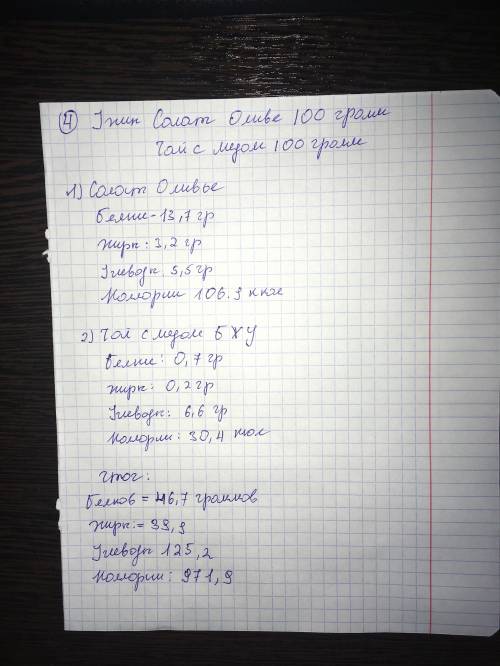 4 Ужин Салат Оливе 100 грамм
Чай с медом 100 грамм
1) Салат Оливье
Белки - 13,7 гр
жиры: 3,2 гр
Углеводы 5,5 гр
Калории 106.9 ккал
2) Чай с медом БЖУ
Белки: 0,7 гр
жиры: 0,2 гр
Углеводы: 6,6 гр
Калории: 30,4 ккал
Итог:
Белков = 46,7 граммов
Жиры: = 39,9
Углеводы 125,2
Калории: 971,9